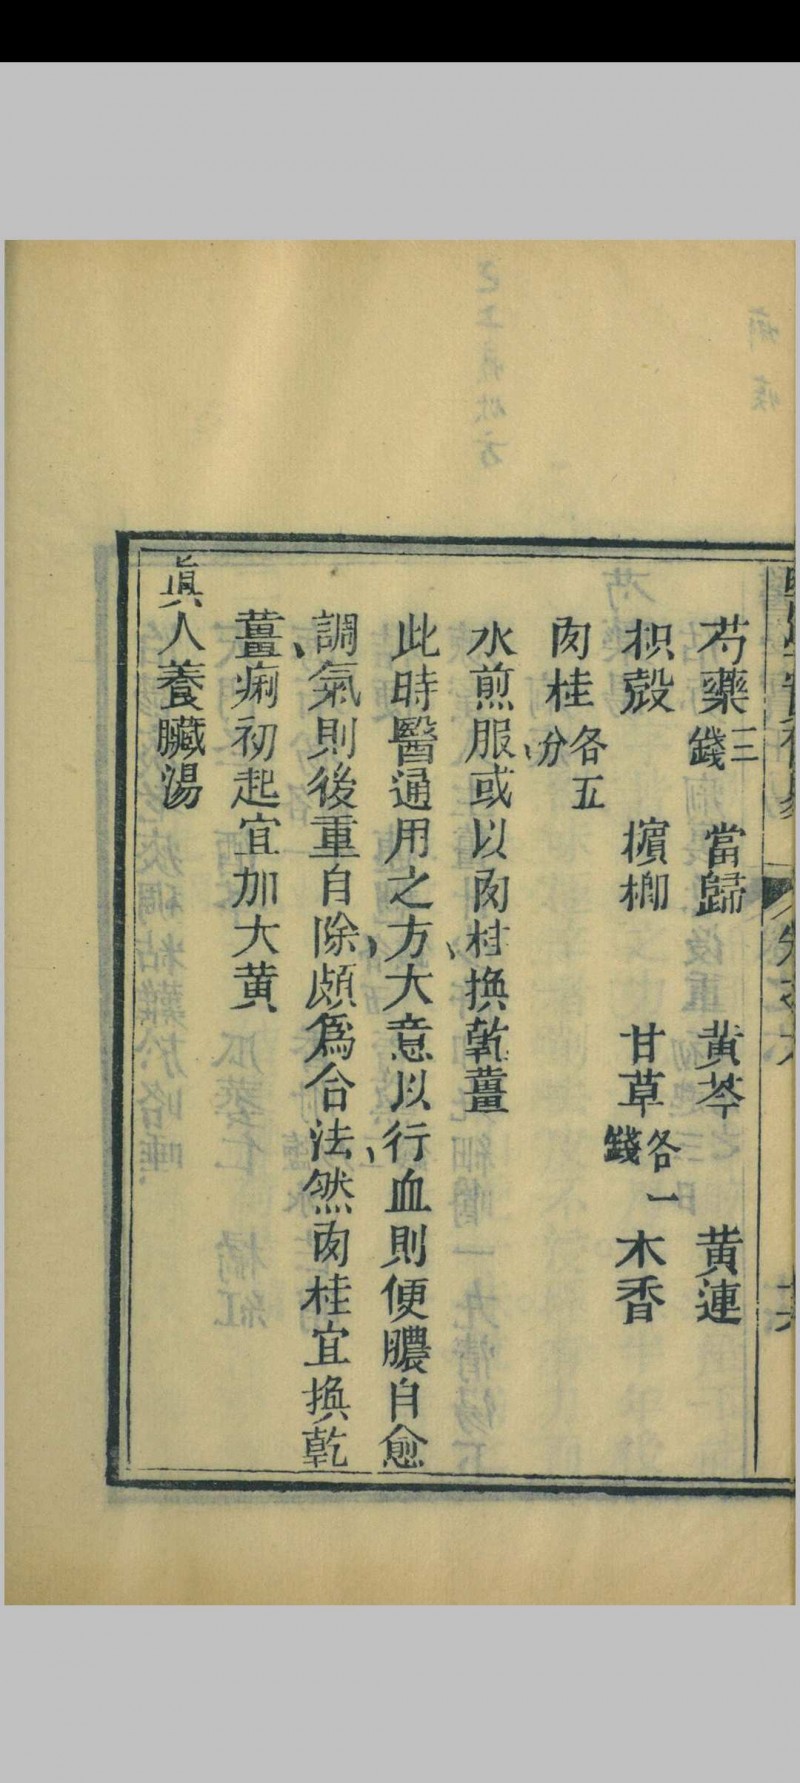 芍藥三錢　當歸　黃芩　黃連
枳殼　檳榔　甘草各一錢　木香
肉桂各五分
水煎服或以肉桂換乾薑
此時醫通用之方大意以行血則便膿自愈
調氣則後重自除頗爲合法然肉桂宜換乾
薑痢初起宜加大黃
眞人養臟湯